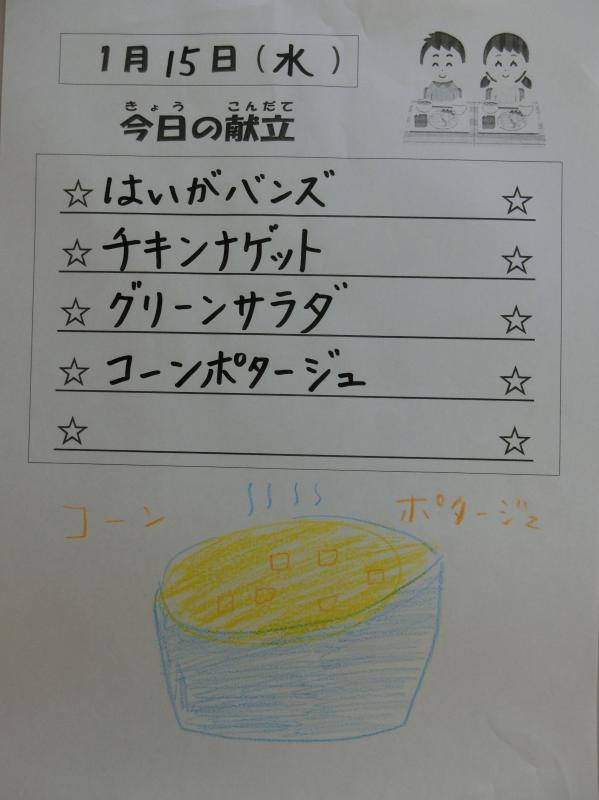 1月15日(水)
きょう こんだて
今日の献立
☆はいがバンズ☆
☆チキンナゲット☆
☆グリーンサラダ☆
☆コーンポタージュ☆
☆ ☆
コーン ポタージュ